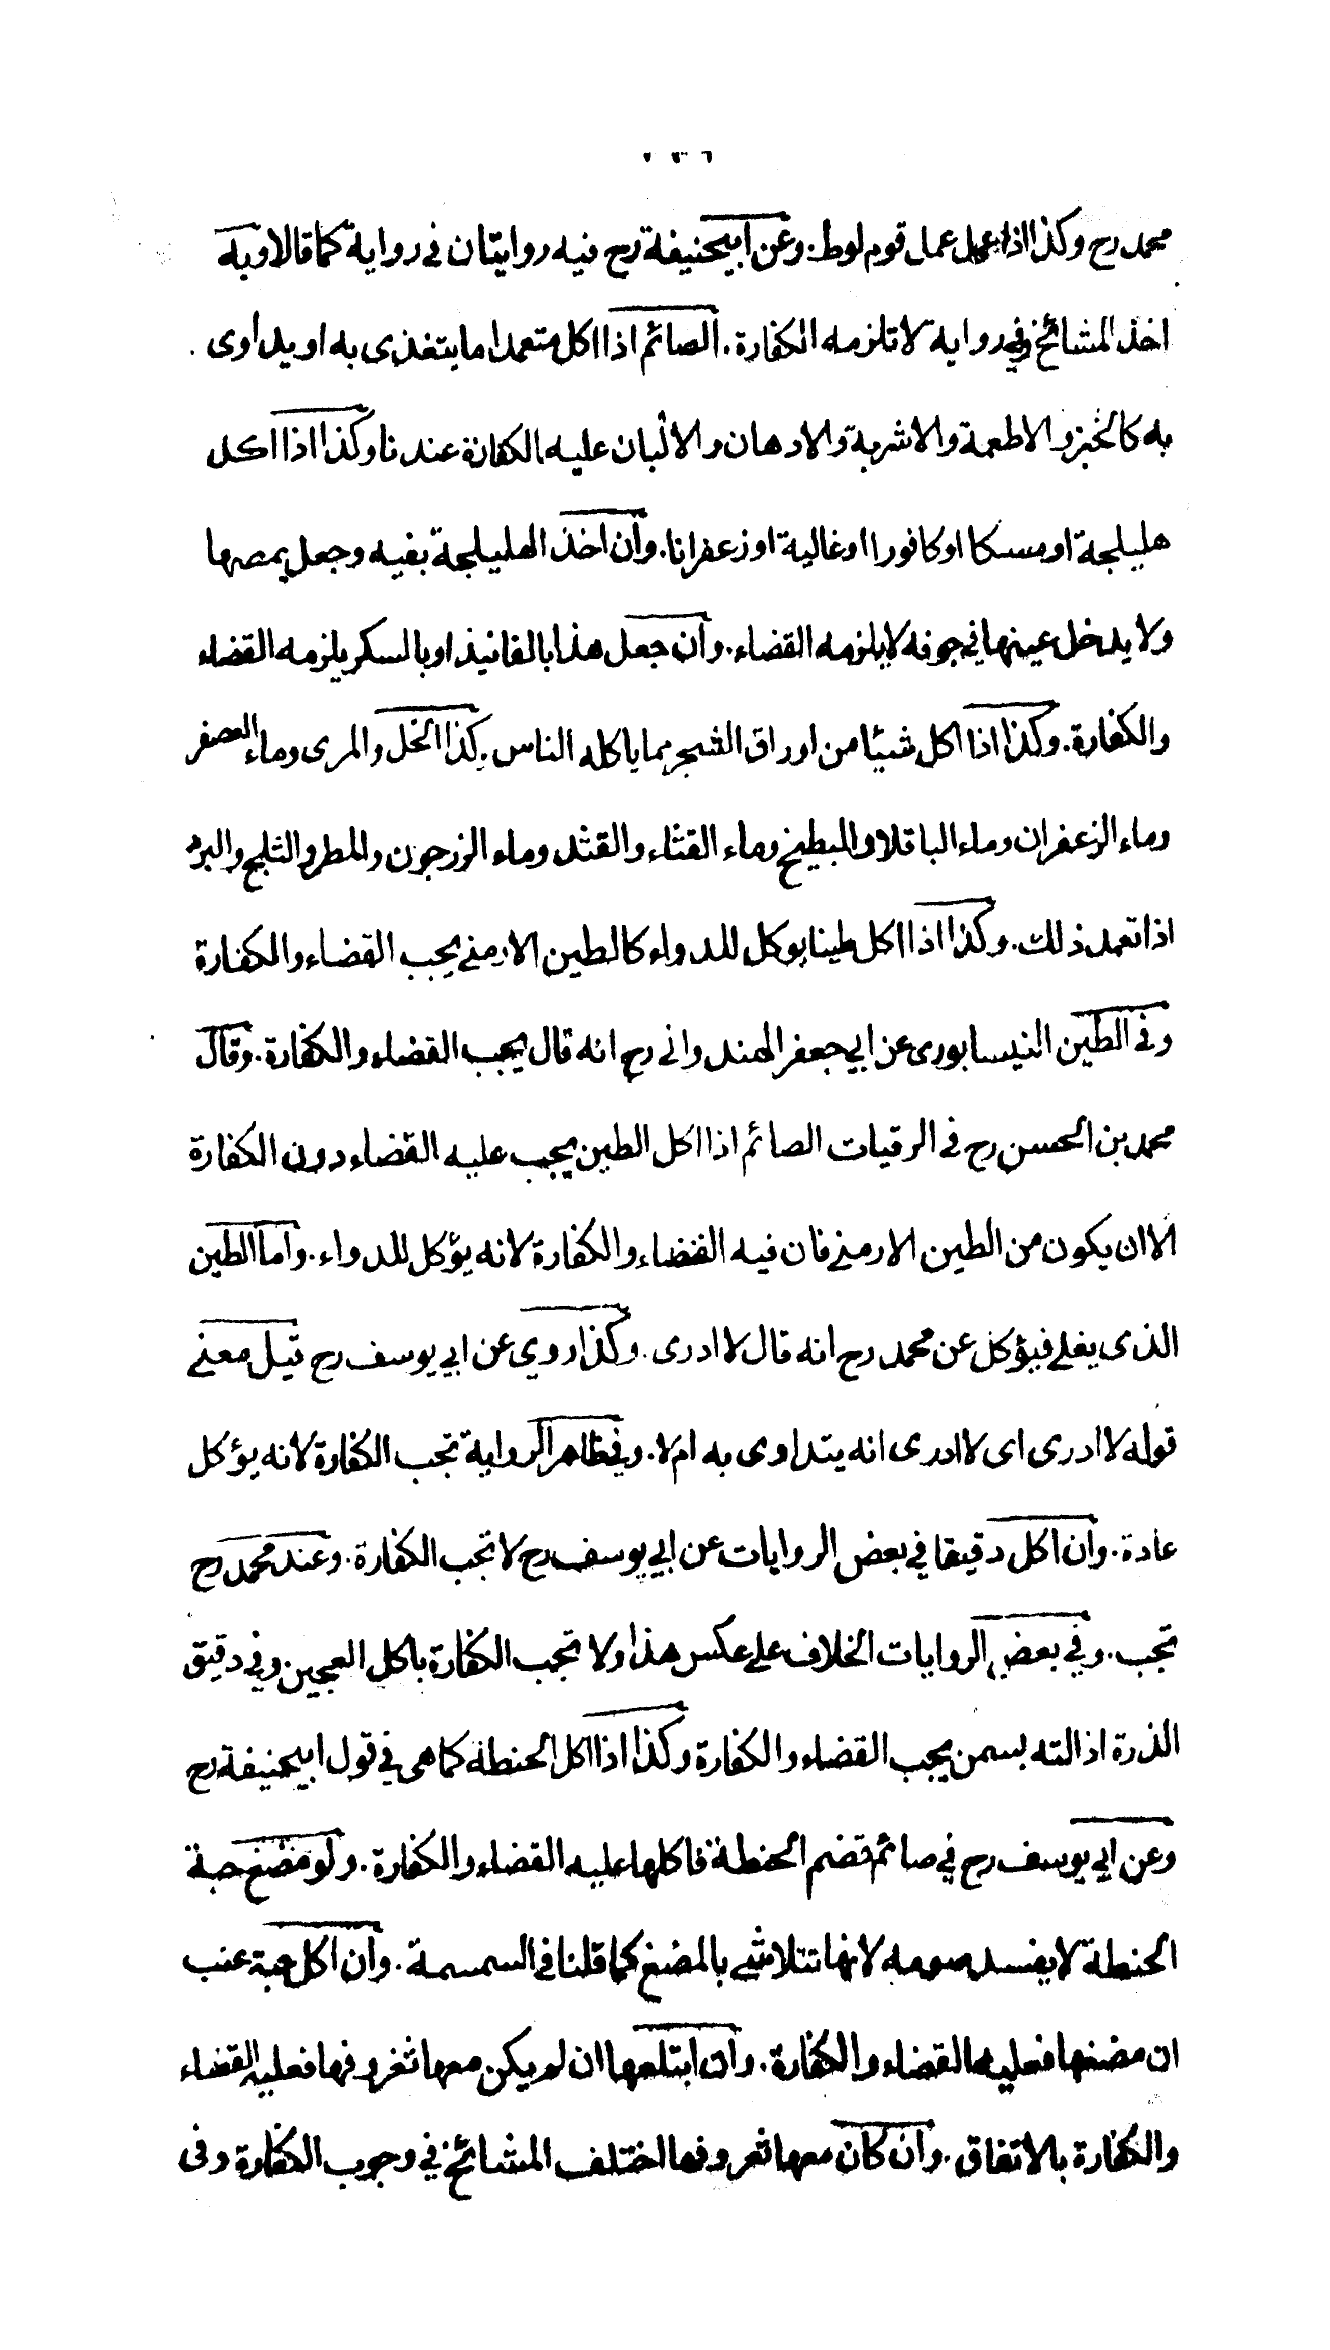 محمد رح وكذا اذا عمل عمل قوم لوط. وعن ابيحنيفة رح فيه روايتان في رواية كما قالا وبه
اخذ المشائخ وفي رواية لا تلزمه الكفارة. الصائم اذا اكل متعمدا ما يتغذى به او يداوى
به كالخبز والاطعمة والاشربة والادهان والالبان عليه الكفارة عندنا وكذا اذا اكل
هليلجة او مسكا او كافورا او غالية او زعفرانا. وان اخذ الهليلجة بفيه وجعل يمصها
ولا يدخل عينها في جوفه لا يلزمه القضاء. وان جعل هذا بالفانيذ او بالسكر يلزمه القضاء
والكفارة. وكذا اذا اكل شيئا من اوراق الشجر مما ياكله الناس. كذا الخل والمرى وماء العصفر
وماء الزعفران وماء الباقلا والبطيخ وماء القثاء والقثد وماء الزرجون والمطر والثلج والبرد
اذا تعمد ذلك. وكذا اذا اكل طينا يوكل للدواء كالطين الارمني يجب القضاء والكفارة
وفي الطين النيسابورى عن ابي جعفر الهندواني رح انه قال يجب القضاء والكفارة. وقال
محمد بن الحسن رح في الرقيات الصائم اذا اكل الطين يجب عليه القضاء دون الكفارة
الا ان يكون من الطين الارمني فان فيه القضاء والكفارة لانه يؤكل للدواء. واما الطين
الذى يغلي فيؤكل عن محمد رح انه قال لا ادرى. وكذا روي عن ابي يوسف رح قيل معنى
قوله لا ادرى اى لا ادرى انه يتداوى به ام لا. وفي ظاهر الرواية تجب الكفارة لانه يؤكل
عادة. وان اكل دقيقا في بعض الروايات عن ابي يوسف رح لا تجب الكفارة. وعند محمد رح
تجب. وفي بعض الروايات الخلاف على عكس هذا ولا تجب الكفارة باكل العجين وفي دقيق
الذرة اذا لته بسمن يجب القضاء والكفارة وكذا اذا اكل الحنطة كما هى في قول ابيحنيفة رح
وعن ابي يوسف رح في صائم قضم الحنطة فاكلها عليه القضاء والكفارة. ولو مضغ حبة
الحنطة لا يفسد صومه لانها تتلاشى بالمضغ كما قلنا في السمسمة. وان اكل حبة عنب
ان مضغها فعليه القضاء والكفارة. وان ابتلعها ان لم يكن معها ثفروقها فعليه القضاء
والكفارة بالاتفاق. وان كان معها ثفروقها اختلف المشائخ في وجوب الكفارة وفى